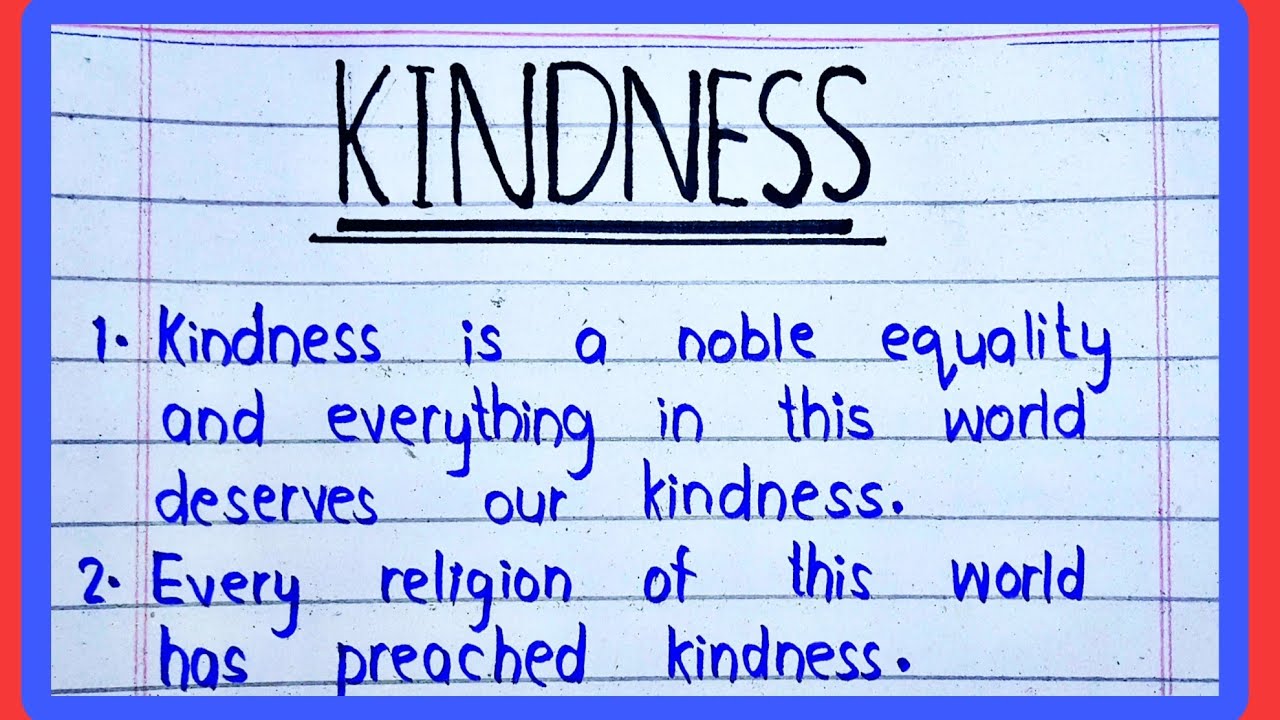 KINDNESS
1. Kindness is a noble equality
and everything in this world
deserves our kindness.
2. Every religion of this world
has preached kindness.